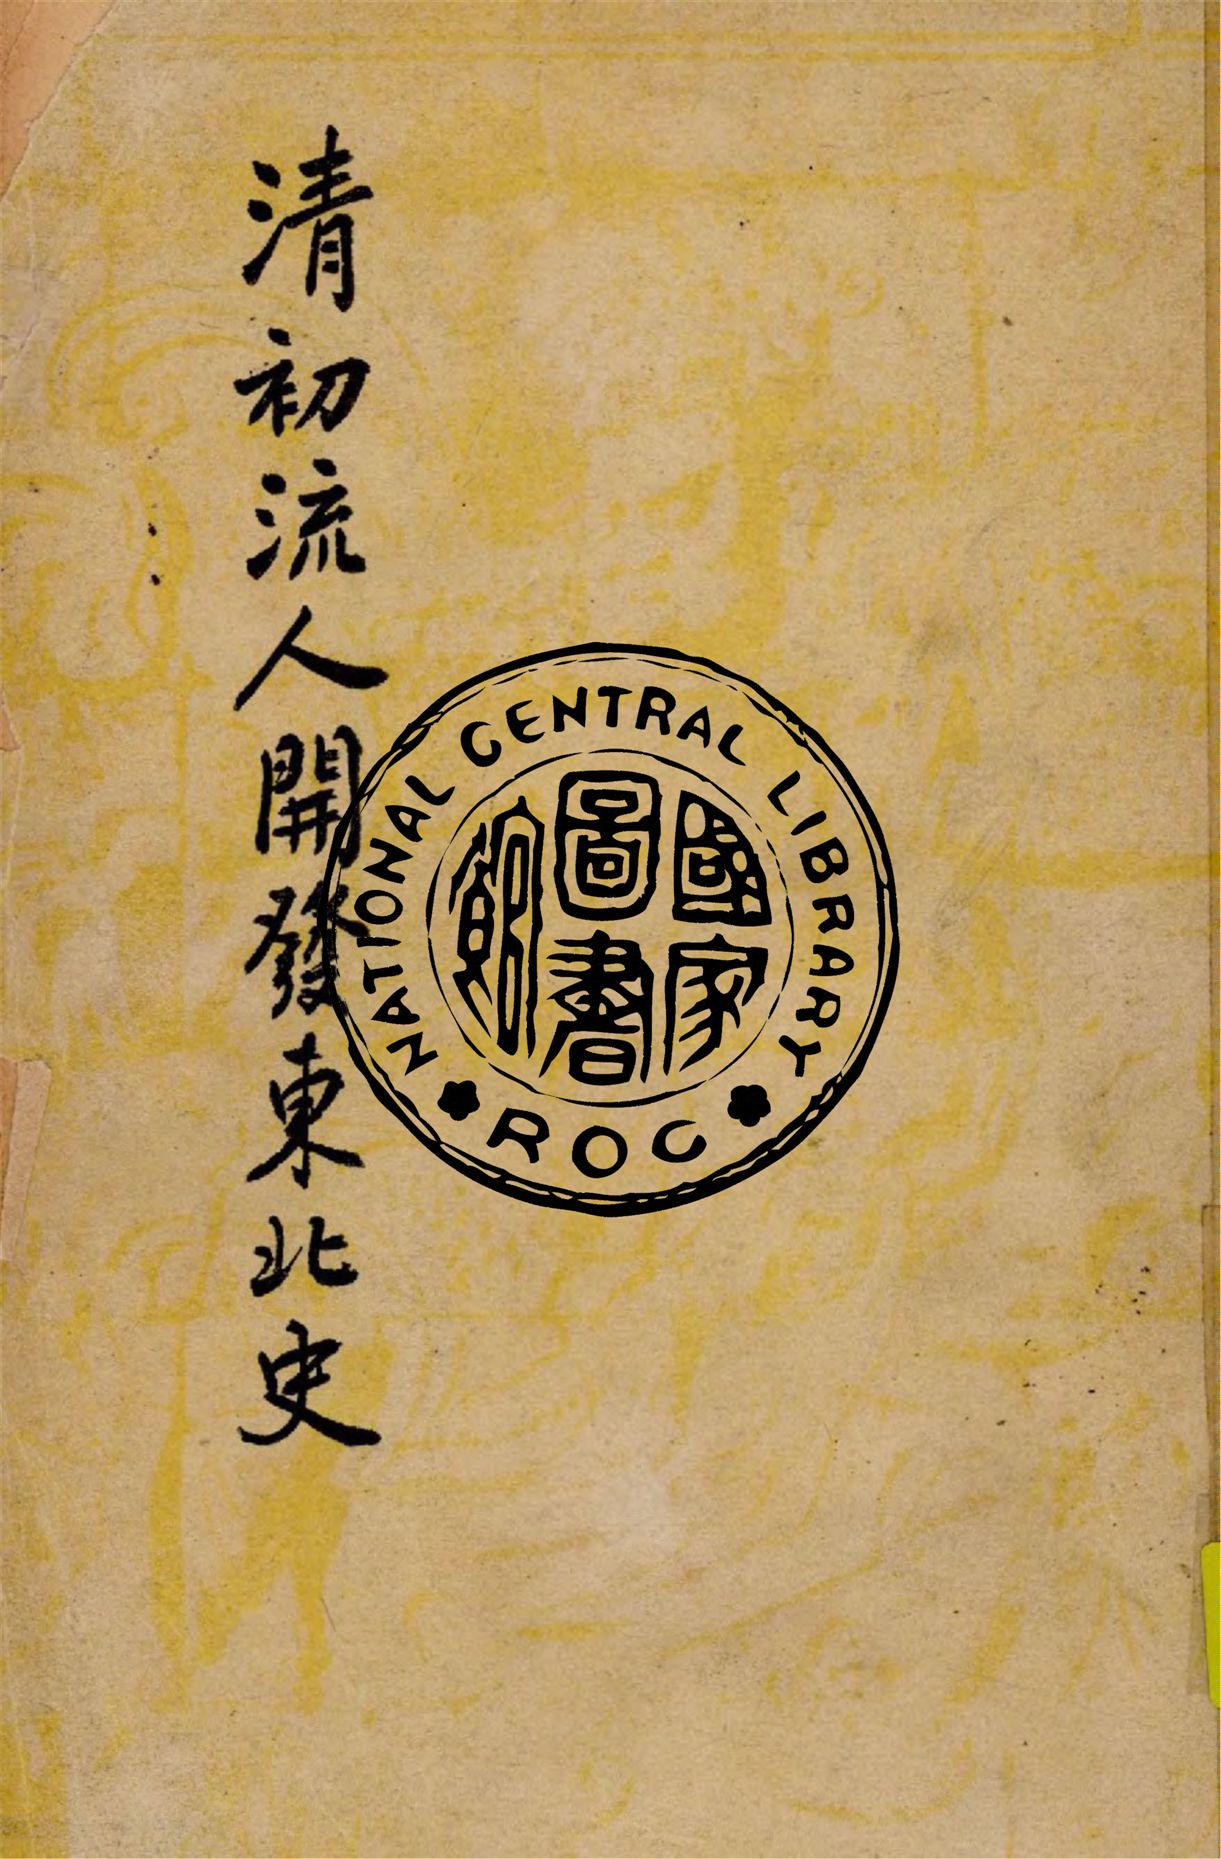 清初流人開發東北史
NATIONAL CENTRAL LIBRARY
國家
圖書
館
ROC